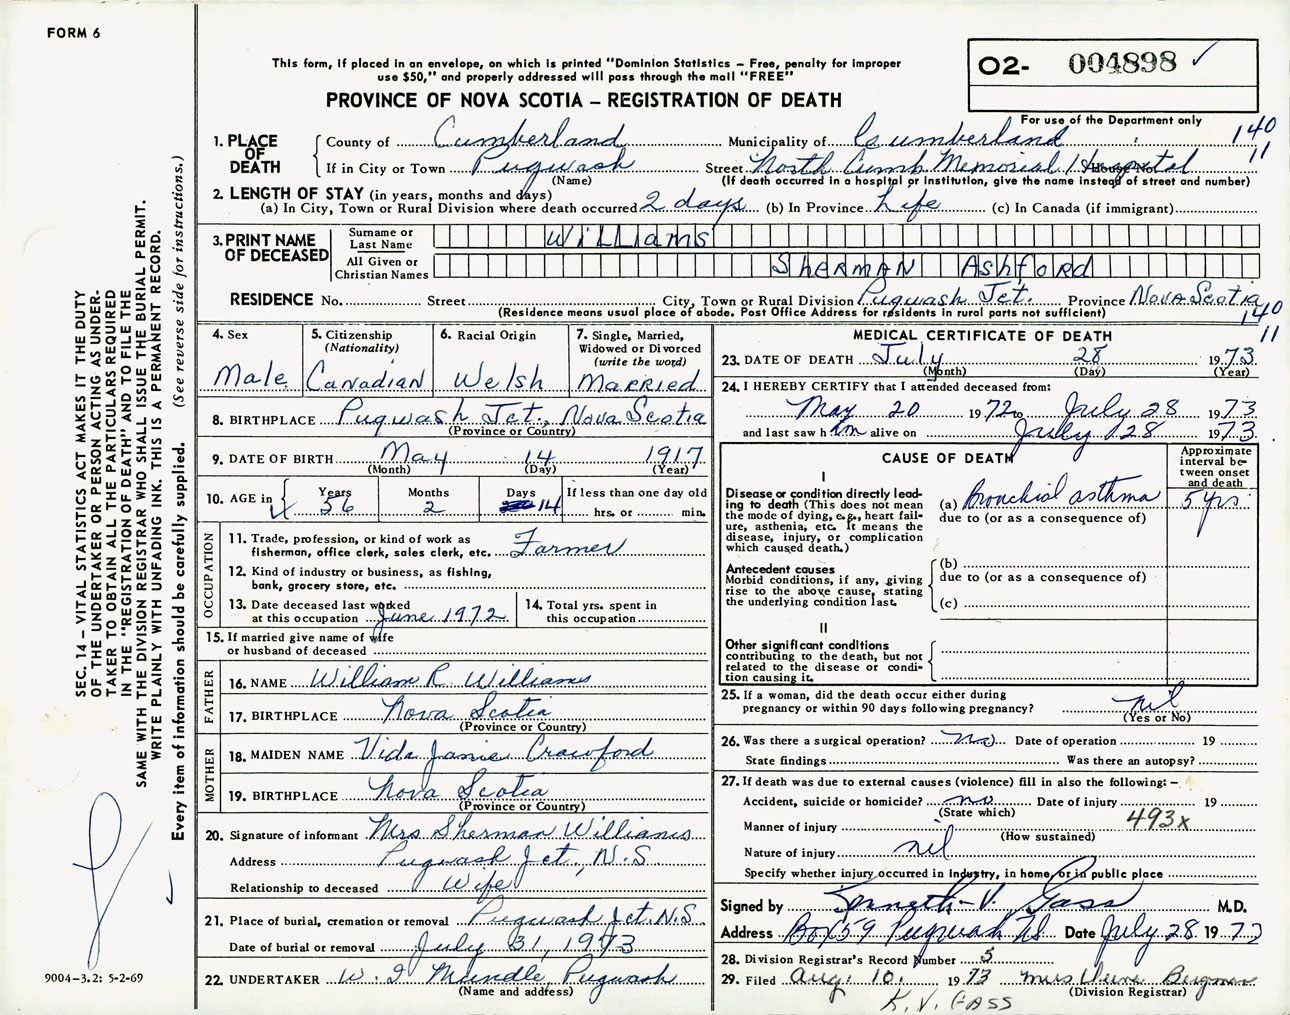 FORM 6
This form, if placed in an envelope, on which is printed "Dominion Statistics – Free, penalty for improper
use $50," and properly addressed will pass through the mail "FREE"
PROVINCE OF NOVA SCOTIA – REGISTRATION OF DEATH
O2- 004898 ✓
For use of the Department only
140
11
1. PLACE OF DEATH
County of Cumberland Municipality of Cumberland
If in City or Town Pugwash Street North Cumb Memorial Hospital House No.
(Name) (If death occurred in a hospital or institution, give the name instead of street and number)
2. LENGTH OF STAY (in years, months and days)
(a) In City, Town or Rural Division where death occurred 2 days (b) In Province Life (c) In Canada (if immigrant)
3. PRINT NAME OF DECEASED
Surname or Last Name Williams
All Given or Christian Names SHERMAN Ashford
RESIDENCE No. Street City, Town or Rural Division Pugwash Jct. Province Nova Scotia
(Residence means usual place of abode. Post Office Address for residents in rural parts not sufficient)
140
11
4. Sex Male
5. Citizenship (Nationality) Canadian
6. Racial Origin Welsh
7. Single, Married, Widowed or Divorced (write the word) Married
8. BIRTHPLACE Pugwash Jct., Nova Scotia
(Province or Country)
9. DATE OF BIRTH May 14 1917
(Month) (Day) (Year)
10. AGE in Years 56 Months 2 Days 14 If less than one day old
hrs. or min.
OCCUPATION
11. Trade, profession, or kind of work as
fisherman, office clerk, sales clerk, etc. Farmer
12. Kind of industry or business, as fishing,
bank, grocery store, etc.
13. Date deceased last worked
at this occupation June 1972
14. Total yrs. spent in
this occupation
15. If married give name of wife
or husband of deceased
FATHER
16. NAME William R. Williams
17. BIRTHPLACE Nova Scotia
(Province or Country)
MOTHER
18. MAIDEN NAME Vida Janie Crawford
19. BIRTHPLACE Nova Scotia
(Province or Country)
20. Signature of informant Mrs Sherman Williams
Address Pugwash Jct., N.S
Relationship to deceased Wife
21. Place of burial, cremation or removal Pugwash Jct. N.S
Date of burial or removal July 31, 1973
22. UNDERTAKER Mundle, Pugwash
(Name and address)
MEDICAL CERTIFICATE OF DEATH
23. DATE OF DEATH July 28 1973
(Month) (Day) (Year)
24. I HEREBY CERTIFY that I attended deceased from:
May 20 1972 to July 28 1973
and last saw him alive on July 28 1973.
CAUSE OF DEATH
Approximate
interval be-
tween onset
and death
I
Disease or condition directly lead-
ing to death (This does not mean
the mode of dying, e.g., heart fail-
ure, asthenia, etc. It means the
disease, injury, or complication
which caused death.)
(a) Bronchial asthma 5 yrs
due to (or as a consequence of)
Antecedent causes
Morbid conditions, if any, giving
rise to the above cause, stating
the underlying condition last.
(b)
due to (or as a consequence of)
(c)
II
Other significant conditions
contributing to the death, but not
related to the disease or condi-
tion causing it.
25. If a woman, did the death occur either during
pregnancy or within 90 days following pregnancy? nil
(Yes or No)
26. Was there a surgical operation? no Date of operation 19
State findings Was there an autopsy?
27. If death was due to external causes (violence) fill in also the following: –
Accident, suicide or homicide? no Date of injury 19
(State which)
Manner of injury 493x
(How sustained)
Nature of injury nil
Specify whether injury occurred in industry, in home, or in public place
Signed by Kenneth V. Gass M.D.
Address Box 59 Pugwash NS Date July 28 1973
28. Division Registrar's Record Number 5
29. Filed Aug. 10. 1973
(Division Registrar)
K. V. GASS
SEC. 14 – VITAL STATISTICS ACT MAKES IT THE DUTY
OF THE UNDERTAKER OR PERSON ACTING AS UNDER-
TAKER TO OBTAIN ALL THE PARTICULARS REQUIRED
IN THE "REGISTRATION OF DEATH" AND TO FILE THE
SAME WITH THE DIVISION REGISTRAR WHO SHALL ISSUE THE BURIAL PERMIT.
WRITE PLAINLY WITH UNFADING INK. THIS IS A PERMANENT RECORD.
Every item of information should be carefully supplied. (See reverse side for instructions.)
9004–3.2: 5-2-69